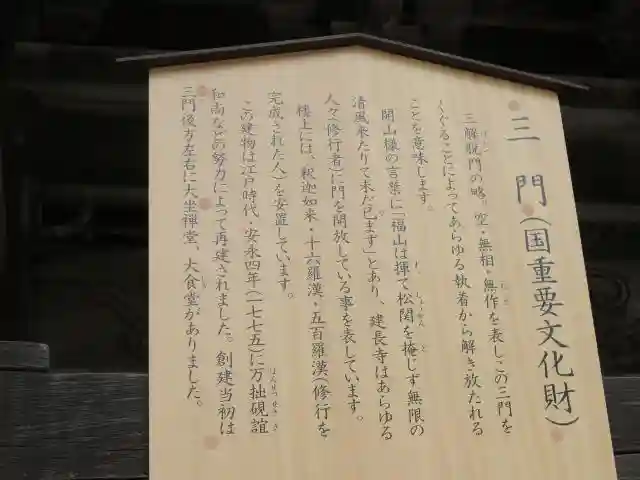 三門(国重要文化財)
三解脱門の略。空・無相・無作を表しこの三門を
くぐることによってあらゆる執着から解き放たれる
ことを意味します。
開山様の言葉に「福山は揮て松関を掩じず無限の
清風来たりて未だ已ます」とあり、建長寺はあらゆる
人々(修行者)に門を開放している事を表しています。
楼上には、釈迦如来・十六羅漢・五百羅漢(修行を
完成された人)を安置しています。
この建物は江戸時代・安永四年(一七七五)に万拙硯誼
和尚などの努力によって再建されました。創建当初は
三門後方左右に大坐禅堂、大食堂がありました。